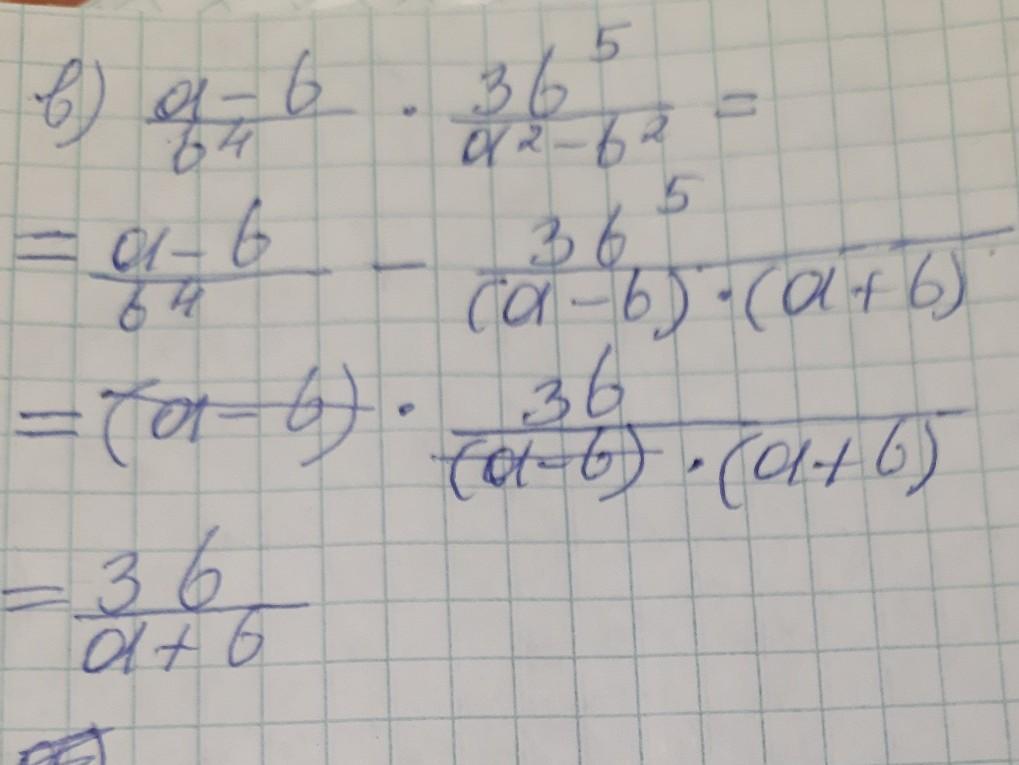 в) (a - b)/b⁴ · 3b⁵/(a² - b²) =
= (a - b)/b⁴ - 3b⁵/((a - b) · (a + b))
= (a - b) · 3b/((a - b) · (a + b))
= 3b/(a + b)